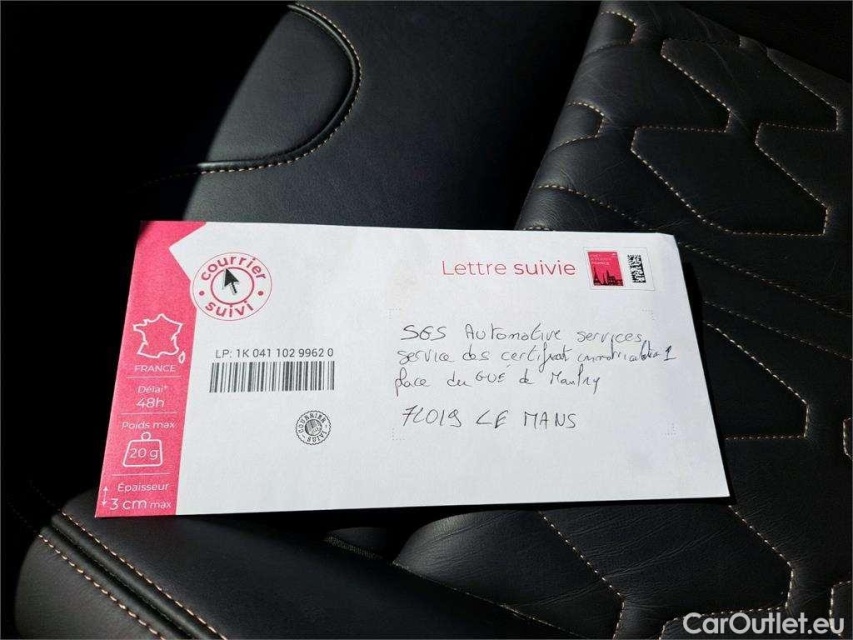 courrier
suivi
Lettre suivie
LP: 1K 041 102 9962 0
FRANCE
Délai*
48h
Poids max
20 g
Épaisseur
3 cm max
SGS Automotive services
service des certificat immatriculation 1
place du GUÉ de Maulny
72019 LE MANS
CarOutlet.eu